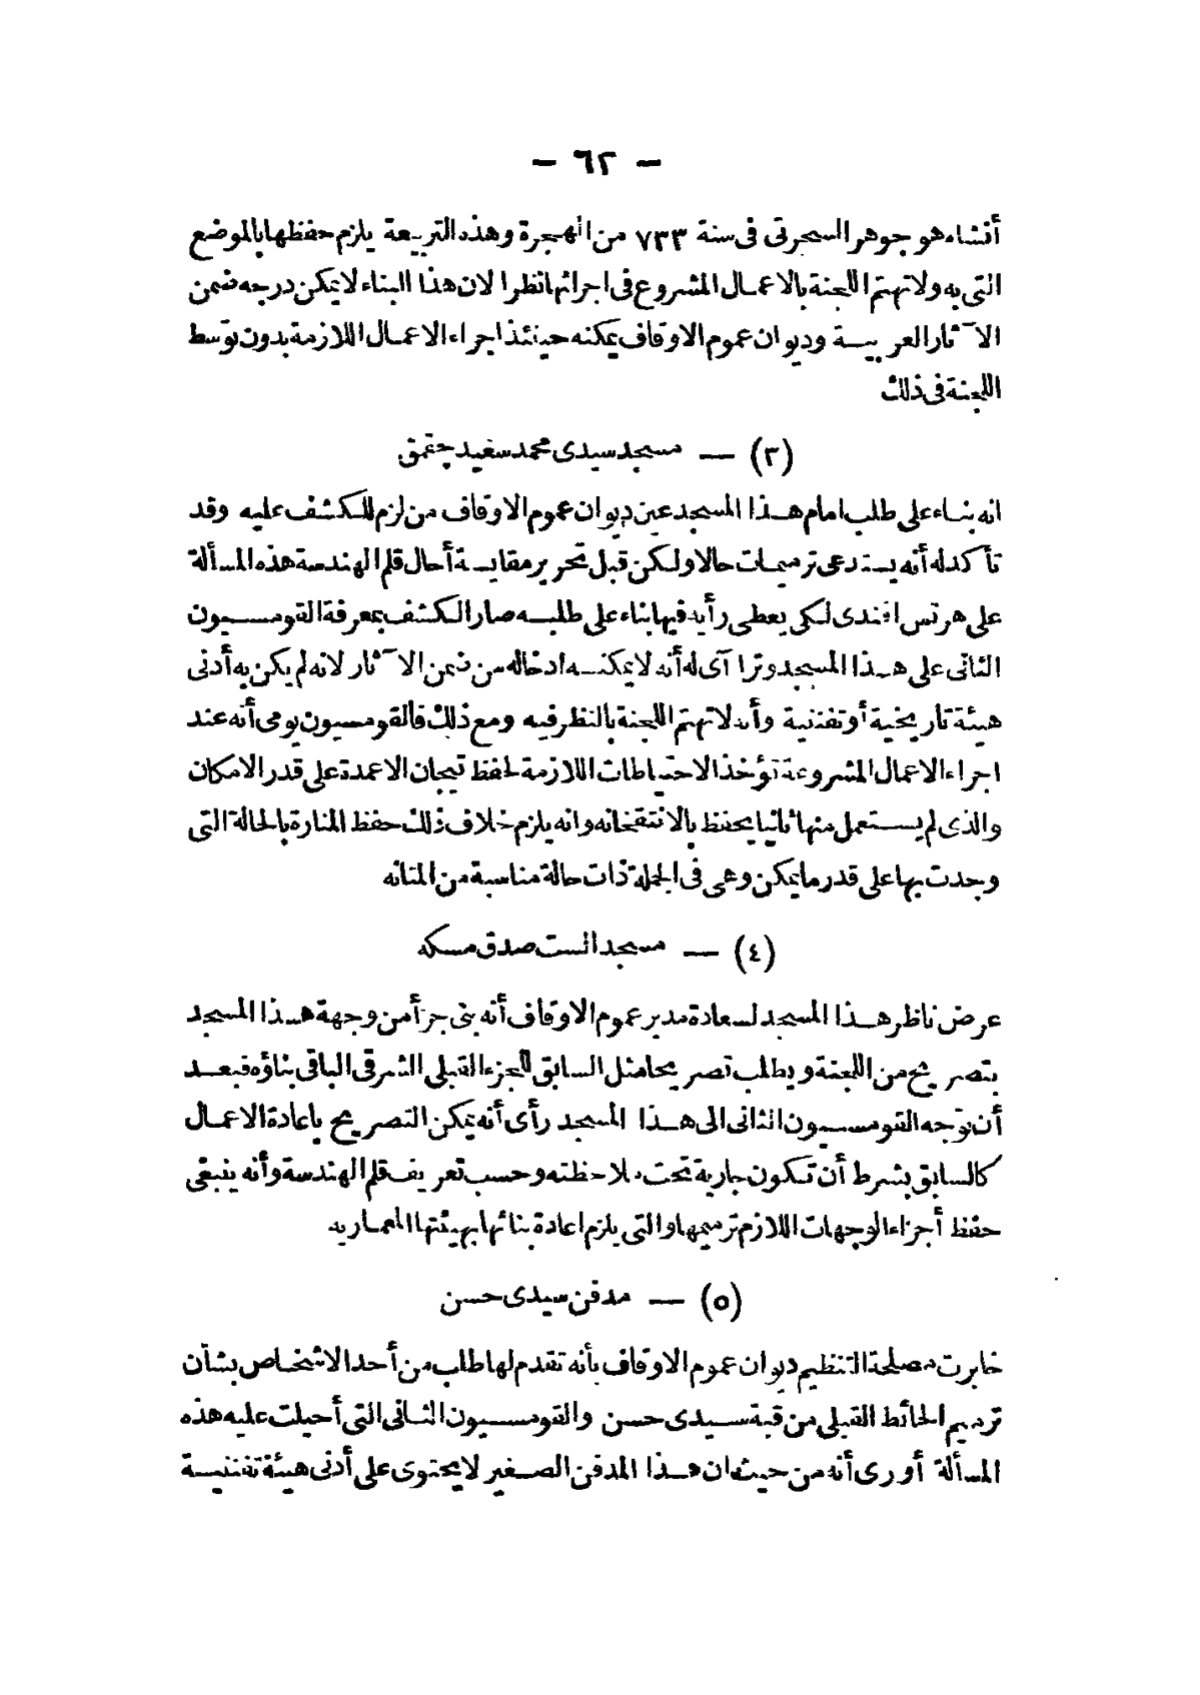 — ٦٢ —
أنشاه هو جوهر السحرتى فى سنة ٧٣٣ من الهجرة وهذه التربيعة يلزم حفظها بالموضع
التى به ولا تهتم اللجنة بالاعمال المشروع فى اجرائها نظرا لان هذا البناء لا يمكن درجه ضمن
الآثار العربية وديوان عموم الاوقاف يمكنه حينئذ اجراء الاعمال اللازمة بدون توسط
اللجنة فى ذلك
(٣) — مسجد سيدى محمد سعيد چقمق
انه بناء على طلب امام هذا المسجد عين ديوان عموم الاوقاف من لزم للكشف عليه وقد
تأكد له أنه يستدعى ترميمات حالا ولكن قبل تحرير مقايسة أحال قلم الهندسة هذه المسألة
على هرتس افندى لكى يعطى رأيه فيها بناء على طلبه صار الكشف بمعرفة القومسيون
الثانى على هذا المسجد وتراآى له أنه لا يمكنه ادخاله من ضمن الآثار لانه لم يكن به أدنى
هيئة تاريخية أو تفننية وأنه لا تهتم اللجنة بالنظر فيه ومع ذلك فالقومسيون يومى أنه عند
اجراء الاعمال المشروعة تؤخذ الاحتياطات اللازمة لحفظ تيجان الاعمدة على قدر الامكان
والذى لم يستعمل منها ثانيا يحفظ بالانتقخانه وانه يلزم خلاف ذلك حفظ المنارة بالحالة التى
وجدت بها على قدر ما يمكن وهى فى الجملة ذات حالة مناسبة من المتانه
(٤) — مسجد الست صدق مسكه
عرض ناظر هذا المسجد لسعادة مدير عموم الاوقاف أنه بنى جزأ من وجهة هذا المسجد
بتصريح من اللجنة ويطلب تصريحا مثل السابق للجزء القبلى الشرقى الباقى بناؤه فبعد
أن توجه القومسيون الثانى الى هذا المسجد رأى أنه يمكن التصريح باعادة الاعمال
كالسابق بشرط أن تكون جارية تحت ملاحظته وحسب تعريف قلم الهندسة وأنه ينبغى
حفظ أجزاء الوجهات اللازم ترميمها والتى يلزم اعادة بنائها بهيئتها المعماريه
(٥) — مدفن سيدى حسن
خابرت مصلحة التنظيم ديوان عموم الاوقاف بأنه تقدم لها طلب من أحد الاشخاص بشأن
ترميم الحائط القبلى من قبة سيدى حسن والقومسيون الثانى التى أحيلت عليه هذه
المسألة أورى أنه من حيث ان هذا المدفن الصغير لا يحتوى على أدنى هيئة تفننية